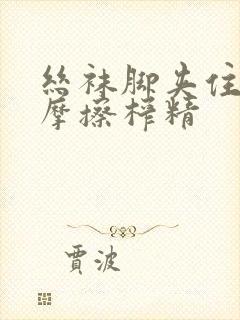 丝袜脚夹住
摩擦榨精
贾波